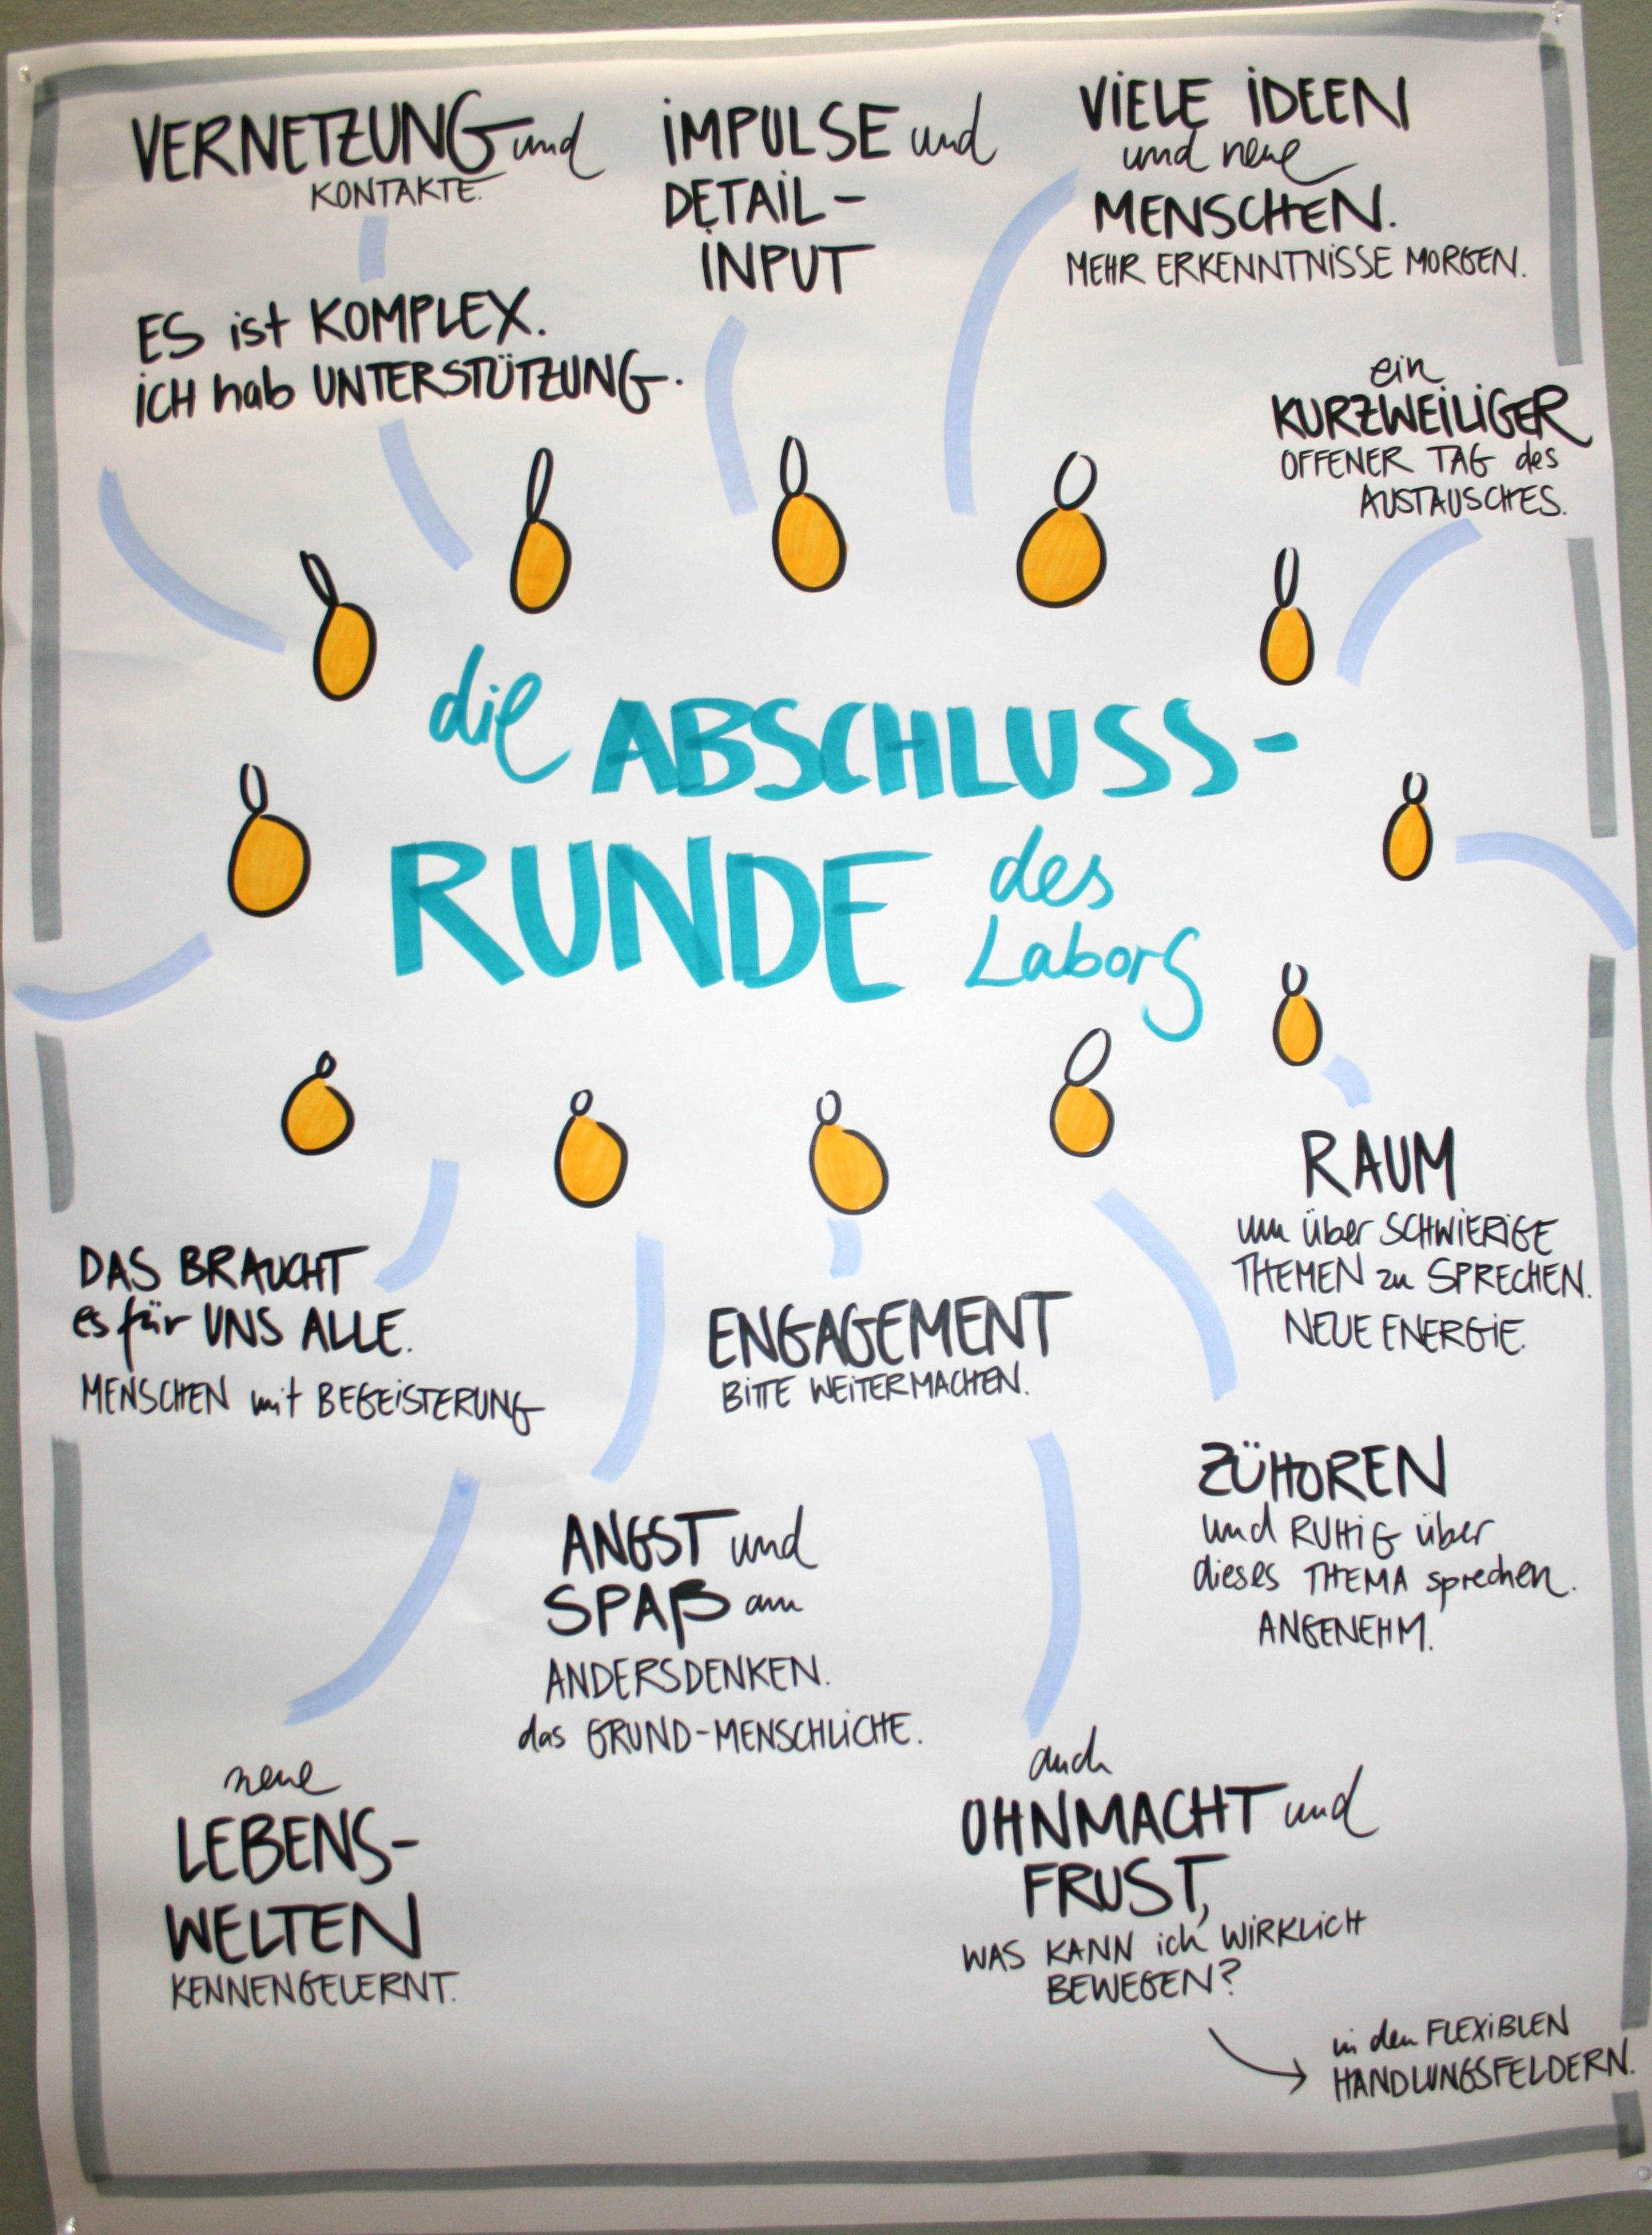 VERNETZUNG und
KONTAKTE.
IMPULSE und
DETAIL-
INPUT
VIELE IDEEN
und neue
MENSCHEN.
MEHR ERKENNTNISSE MORGEN.
ES ist KOMPLEX.
ICH hab UNTERSTÜTZUNG.
ein
KURZWEILIGER
OFFENER TAG des
AUSTAUSCHES.
die ABSCHLUSS-
RUNDE des
Labors
RAUM
um über SCHWIERIGE
THEMEN zu SPRECHEN.
NEUE ENERGIE.
DAS BRAUCHT
es für UNS ALLE.
MENSCHEN mit BEGEISTERUNG
ENGAGEMENT
BITTE WEITERMACHEN.
ZÜHOREN
und RUHIG über
dieses THEMA sprechen.
ANGENEHM.
ANGST und
SPAß am
ANDERSDENKEN.
das GRUND-MENSCHLICHE.
neue
LEBENS-
WELTEN
KENNENGELERNT.
auch
OHNMACHT und
FRUST,
WAS KANN ich WIRKLICH
BEWEGEN?
in den FLEXIBLEN
HANDLUNGSFELDERN.